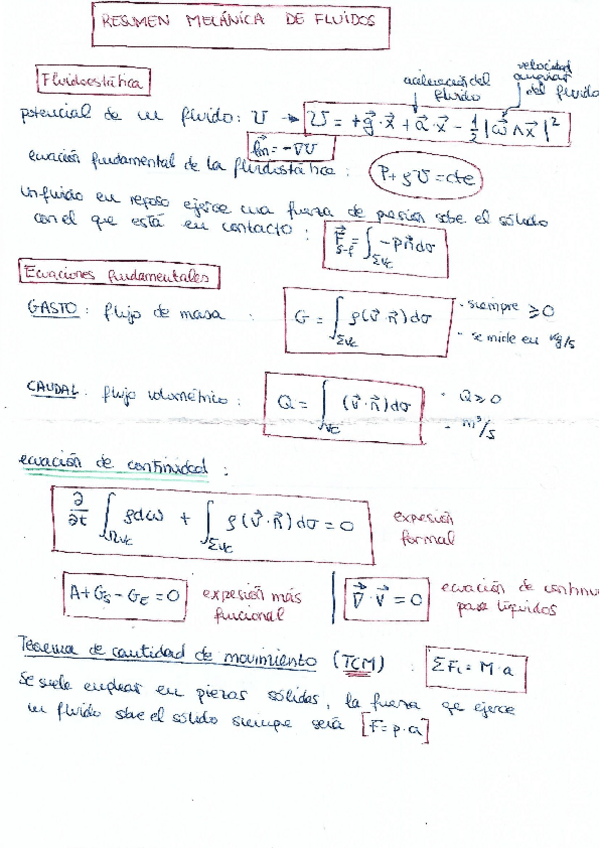 RESUMEN MECÁNICA DE FLUIDOS
Fluidoestática
aceleración del fluido
velocidad angular del fluido
potencial de un fluido: U → U = +g⃗·x⃗ + a⃗·x⃗ - 1/2 |ω⃗ ∧ x⃗|²
f⃗m = -∇U
ecuación fundamental de la fluidostática: P + ρU = cte
Un fluido en reposo ejerce una fuerza de presión sobre el sólido
con el que está en contacto: F⃗s-f = ∫Σvc -p n⃗ dσ
Ecuaciones fundamentales
GASTO: flujo de masa G = ∫Σvc ρ(v⃗·n⃗)dσ
· siempre ≥0
· se mide en kg/s
CAUDAL: flujo volumétrico: Q = ∫vc (v⃗·n⃗)dσ
· Q≥0
- m³/s
ecuación de continuidad:
∂/∂t ∫Ωvc ρdω + ∫Σvc ρ(v⃗·n⃗)dσ = 0 expresión formal
A+Gs-GE=0 expresión más funcional | ∇⃗·v⃗ = 0 ecuación de continu para líquidos
Teorema de cantidad de movimiento (TCM): ΣFi = M·a
Se suele emplear en piezas sólidas, la fuerza qe ejerce
un fluido sobre el sólido siempre será [F=p·a]